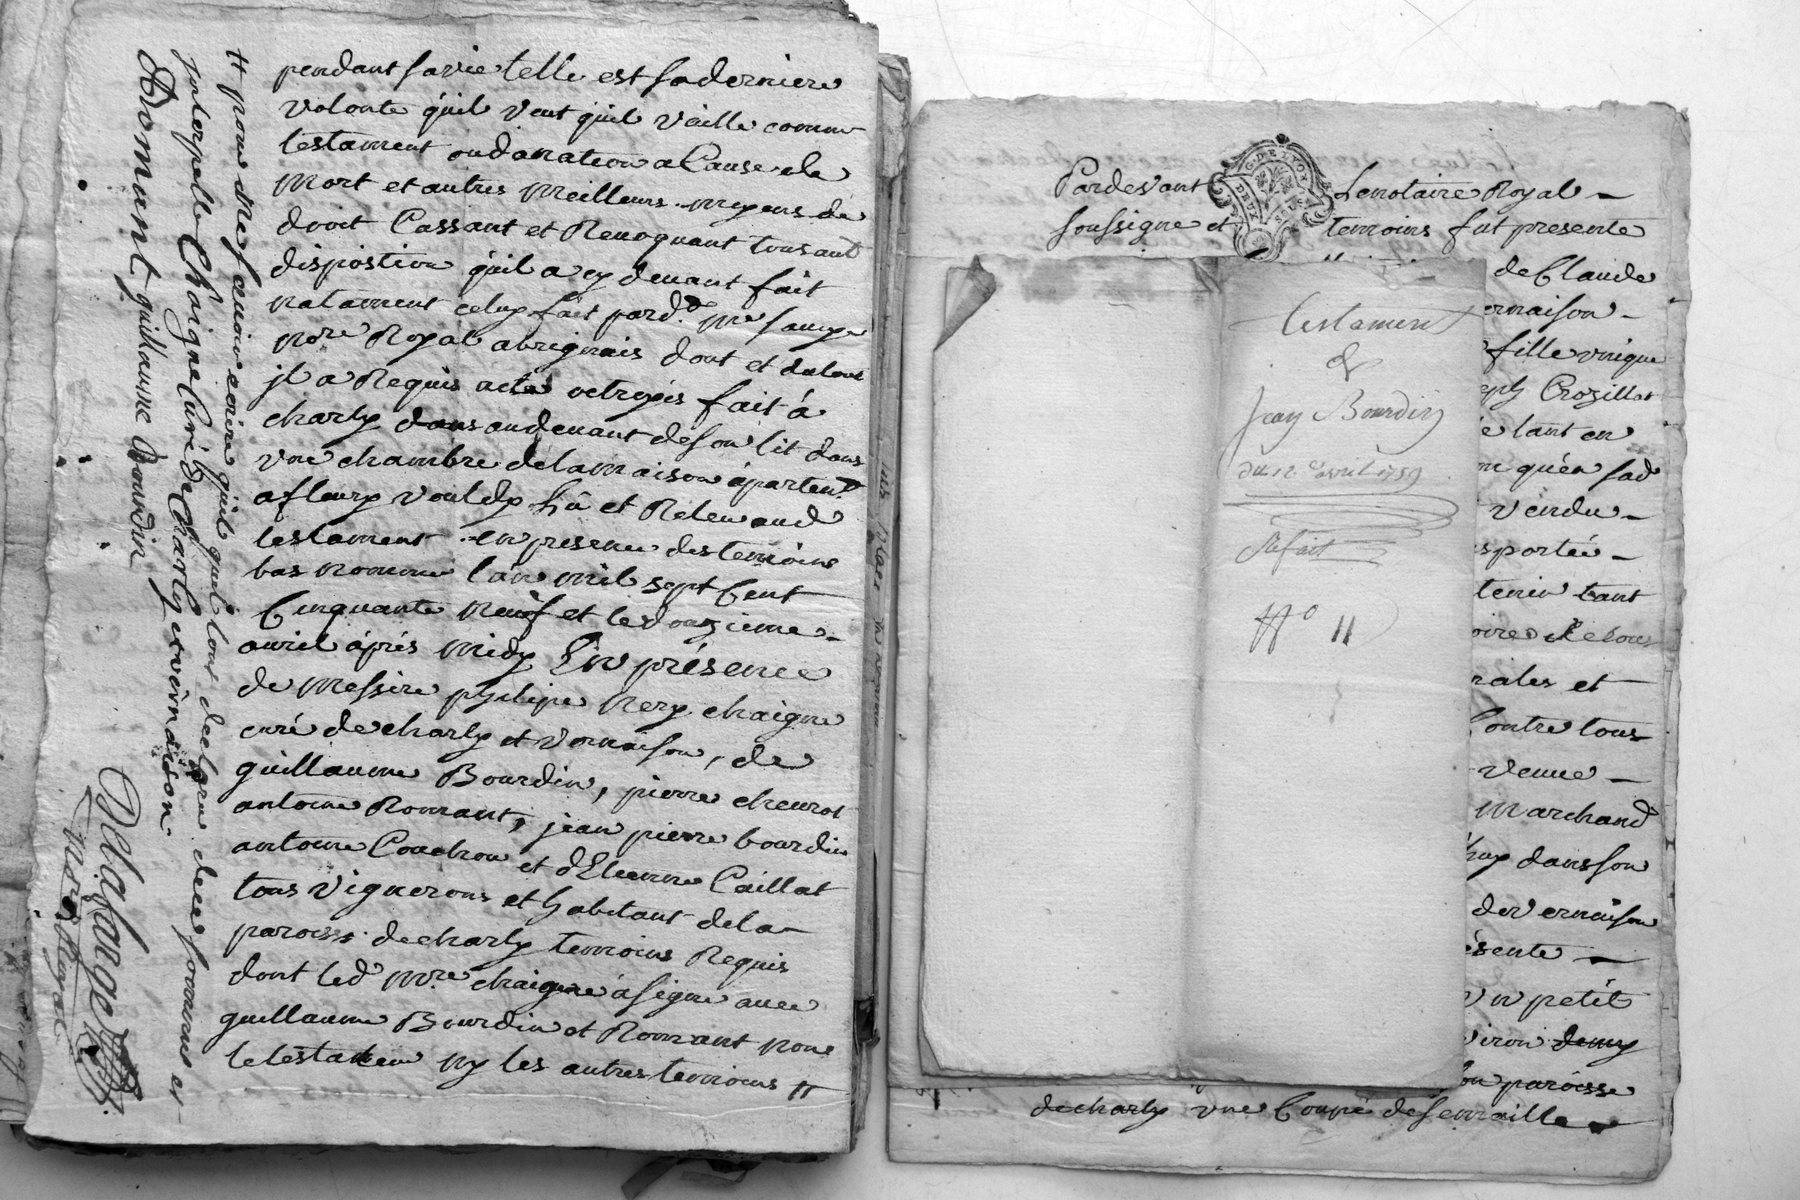 pendant sa vie telle est sa derniere
volonte quil veut quil vaille comme
testament ou donation a Cause de
Mort et autres Meilleurs moyens de
droit Cassant et Revoquant tous aut
dispostion quil a cy devant fait
notament celuy fait pard.t me
nore Royal a brignais dont et du tout
jl a Requis acte octroyés fait á
charly dans au devant de son lit dans
vne chambre de la maison áparten.t
a fleury lû et Releu aud
testament en presence des temoins
bas nommé l'an mil sept Cent
Cinquante Neuf et le douzieme
avril áprés Midy En présence
de Messire philipe Nery chaigne
curé de charly et vernaison, de
guillaume Bourdin, pierre
antoine Romant, jean pierre bourdin
antoine Couchou et d'Etienne Caillat
tous vignerons et habitant de la
paroisse de charly temoins Requis
dont led Mre chaigne á signé avec
guillaume Bourdin et Romant non
le testateur ny les autres temoins #
# pour ne scavoir ecrire quil quel tout declare de ce sommes et
jnterpellé Chaigne Curé de Charly et verndison
Romant guillaume Bourdin
Delafange
nore Royal
Pardevant Le notaire Royal
soussigne et temoins fut presente
G. DE LYON
DEUX SOLS
de Claude
ernaison
fille vnique
eph Crozillat
tant en
quén sad
vendu
sportée
tenir tant
oires
rales et
Contre tous
venue
Marchand
dans son
de vernaison
ésente
vn petit
viron demy
paroisse
de charly vne Coupé de semaille
Testament
de
Jean Bourdin
du 12 avril 1759
Nº 11